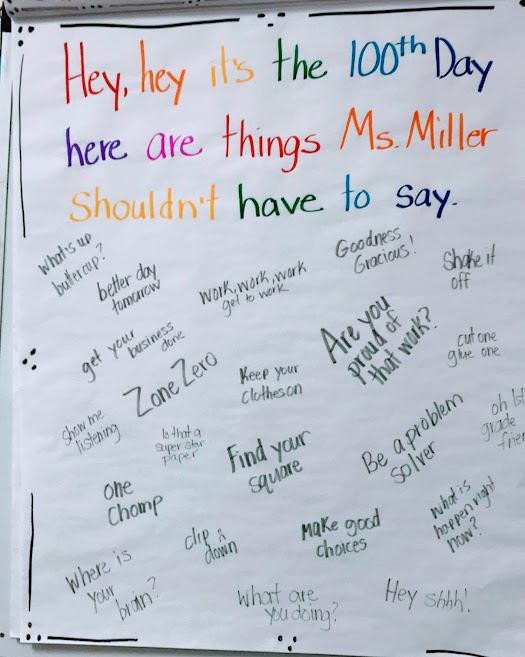 Hey, hey it's the 100th Day
here are things Ms. Miller
Shouldn't have to say.
What's up
buttercup?
better day
tomorrow
work, work, work
get to work
Goodness
Gracious!
Shake it
off
get your
business
done
Zone Zero
Keep your
clotheson
Are you
proud of
that work?
cut one
glue one
Show me
listening
Is that a
super star
paper
Find your
square
Be a problem
solver
oh 1st
grade
One
Chomp
clip it
down
Make good
choices
What is
happen right
now?
Where is
your
brain?
What are
you doing?
Hey shhh!